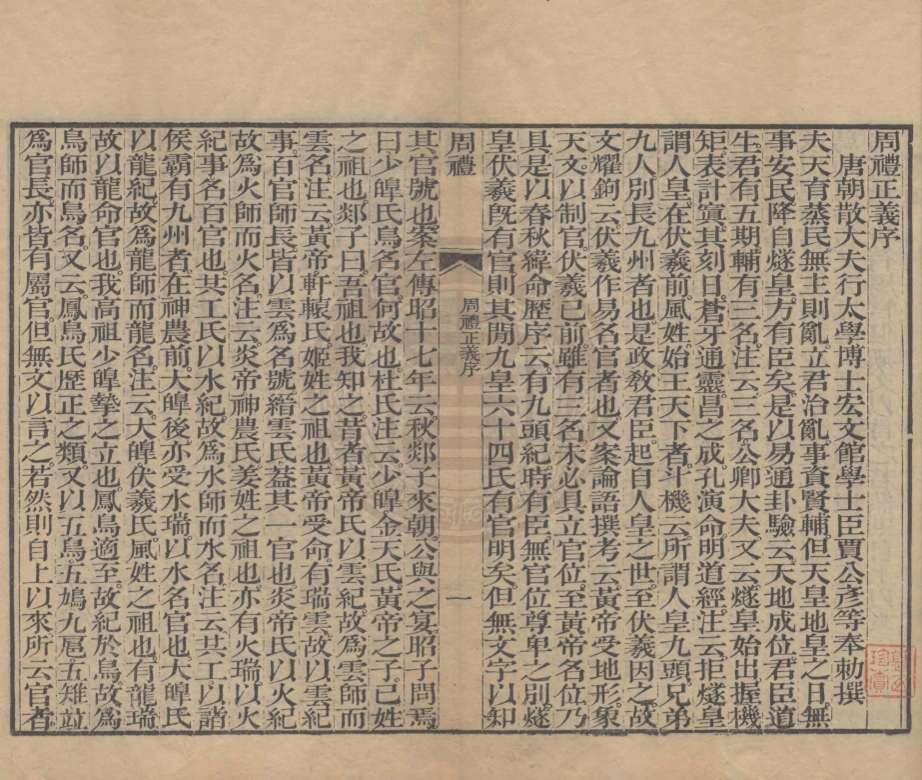 周禮正義序
唐朝散大夫行太學博士宏文館學士臣賈公彥等奉勅撰
夫天育蒸民無主則亂立君治亂事資賢輔但天皇地皇之日無
事安民降自燧皇方有臣矣是以易通卦驗云天地成位君臣道
生君有五期輔有三名注云三名公卿大夫又云燧皇始出握機
矩表計寘其刻日蒼牙通靈昌之成孔演命明道經注云拒燧皇
謂人皇在伏羲前風姓始王天下者斗機云所謂人皇九頭兄弟
九人別長九州者也是政教君臣起自人皇之世至伏羲因之故
文耀鉤云伏羲作易名官者也又案論語撰考云黃帝受地形象
天文以制官伏羲已前雖有三名未必具立官位至黃帝名位乃
具是以春秋緯命歷序云有九頭紀時有臣無官位尊卑之別燧
皇伏羲旣有官則其閒九皇六十四氏有官明矣但無文字以知
周禮
周禮正義序
一
其官號也案左傳昭十七年云秋郯子來朝公與之宴昭子問焉
曰少皥氏鳥名官何故也杜氏注云少皥金天氏黃帝之子已姓
之祖也郯子曰吾祖也我知之昔者黃帝氏以雲紀故爲雲師而
雲名注云黃帝軒轅氏姬姓之祖也黃帝受命有瑞雲故以雲紀
事百官師長皆以雲爲名號縉雲氏蓋其一官也炎帝氏以火紀
故爲火師而火名注云炎帝神農氏姜姓之祖也亦有火瑞以火
紀事名百官也共工氏以水紀故爲水師而水名注云共工以諸
侯霸有九州者在神農前大皥後亦受水瑞以水名官也大皥氏
以龍紀故爲龍師而龍名注云大皥伏羲氏風姓之祖也有龍瑞
故以龍命官也我高祖少皥摯之立也鳳鳥適至故紀於鳥故爲
鳥師而鳥名又云鳳鳥氏歷正之類又以五鳥五鳩九扈五雉竝
爲官長亦皆有屬官但無文以言之若然則自上以來所云官者